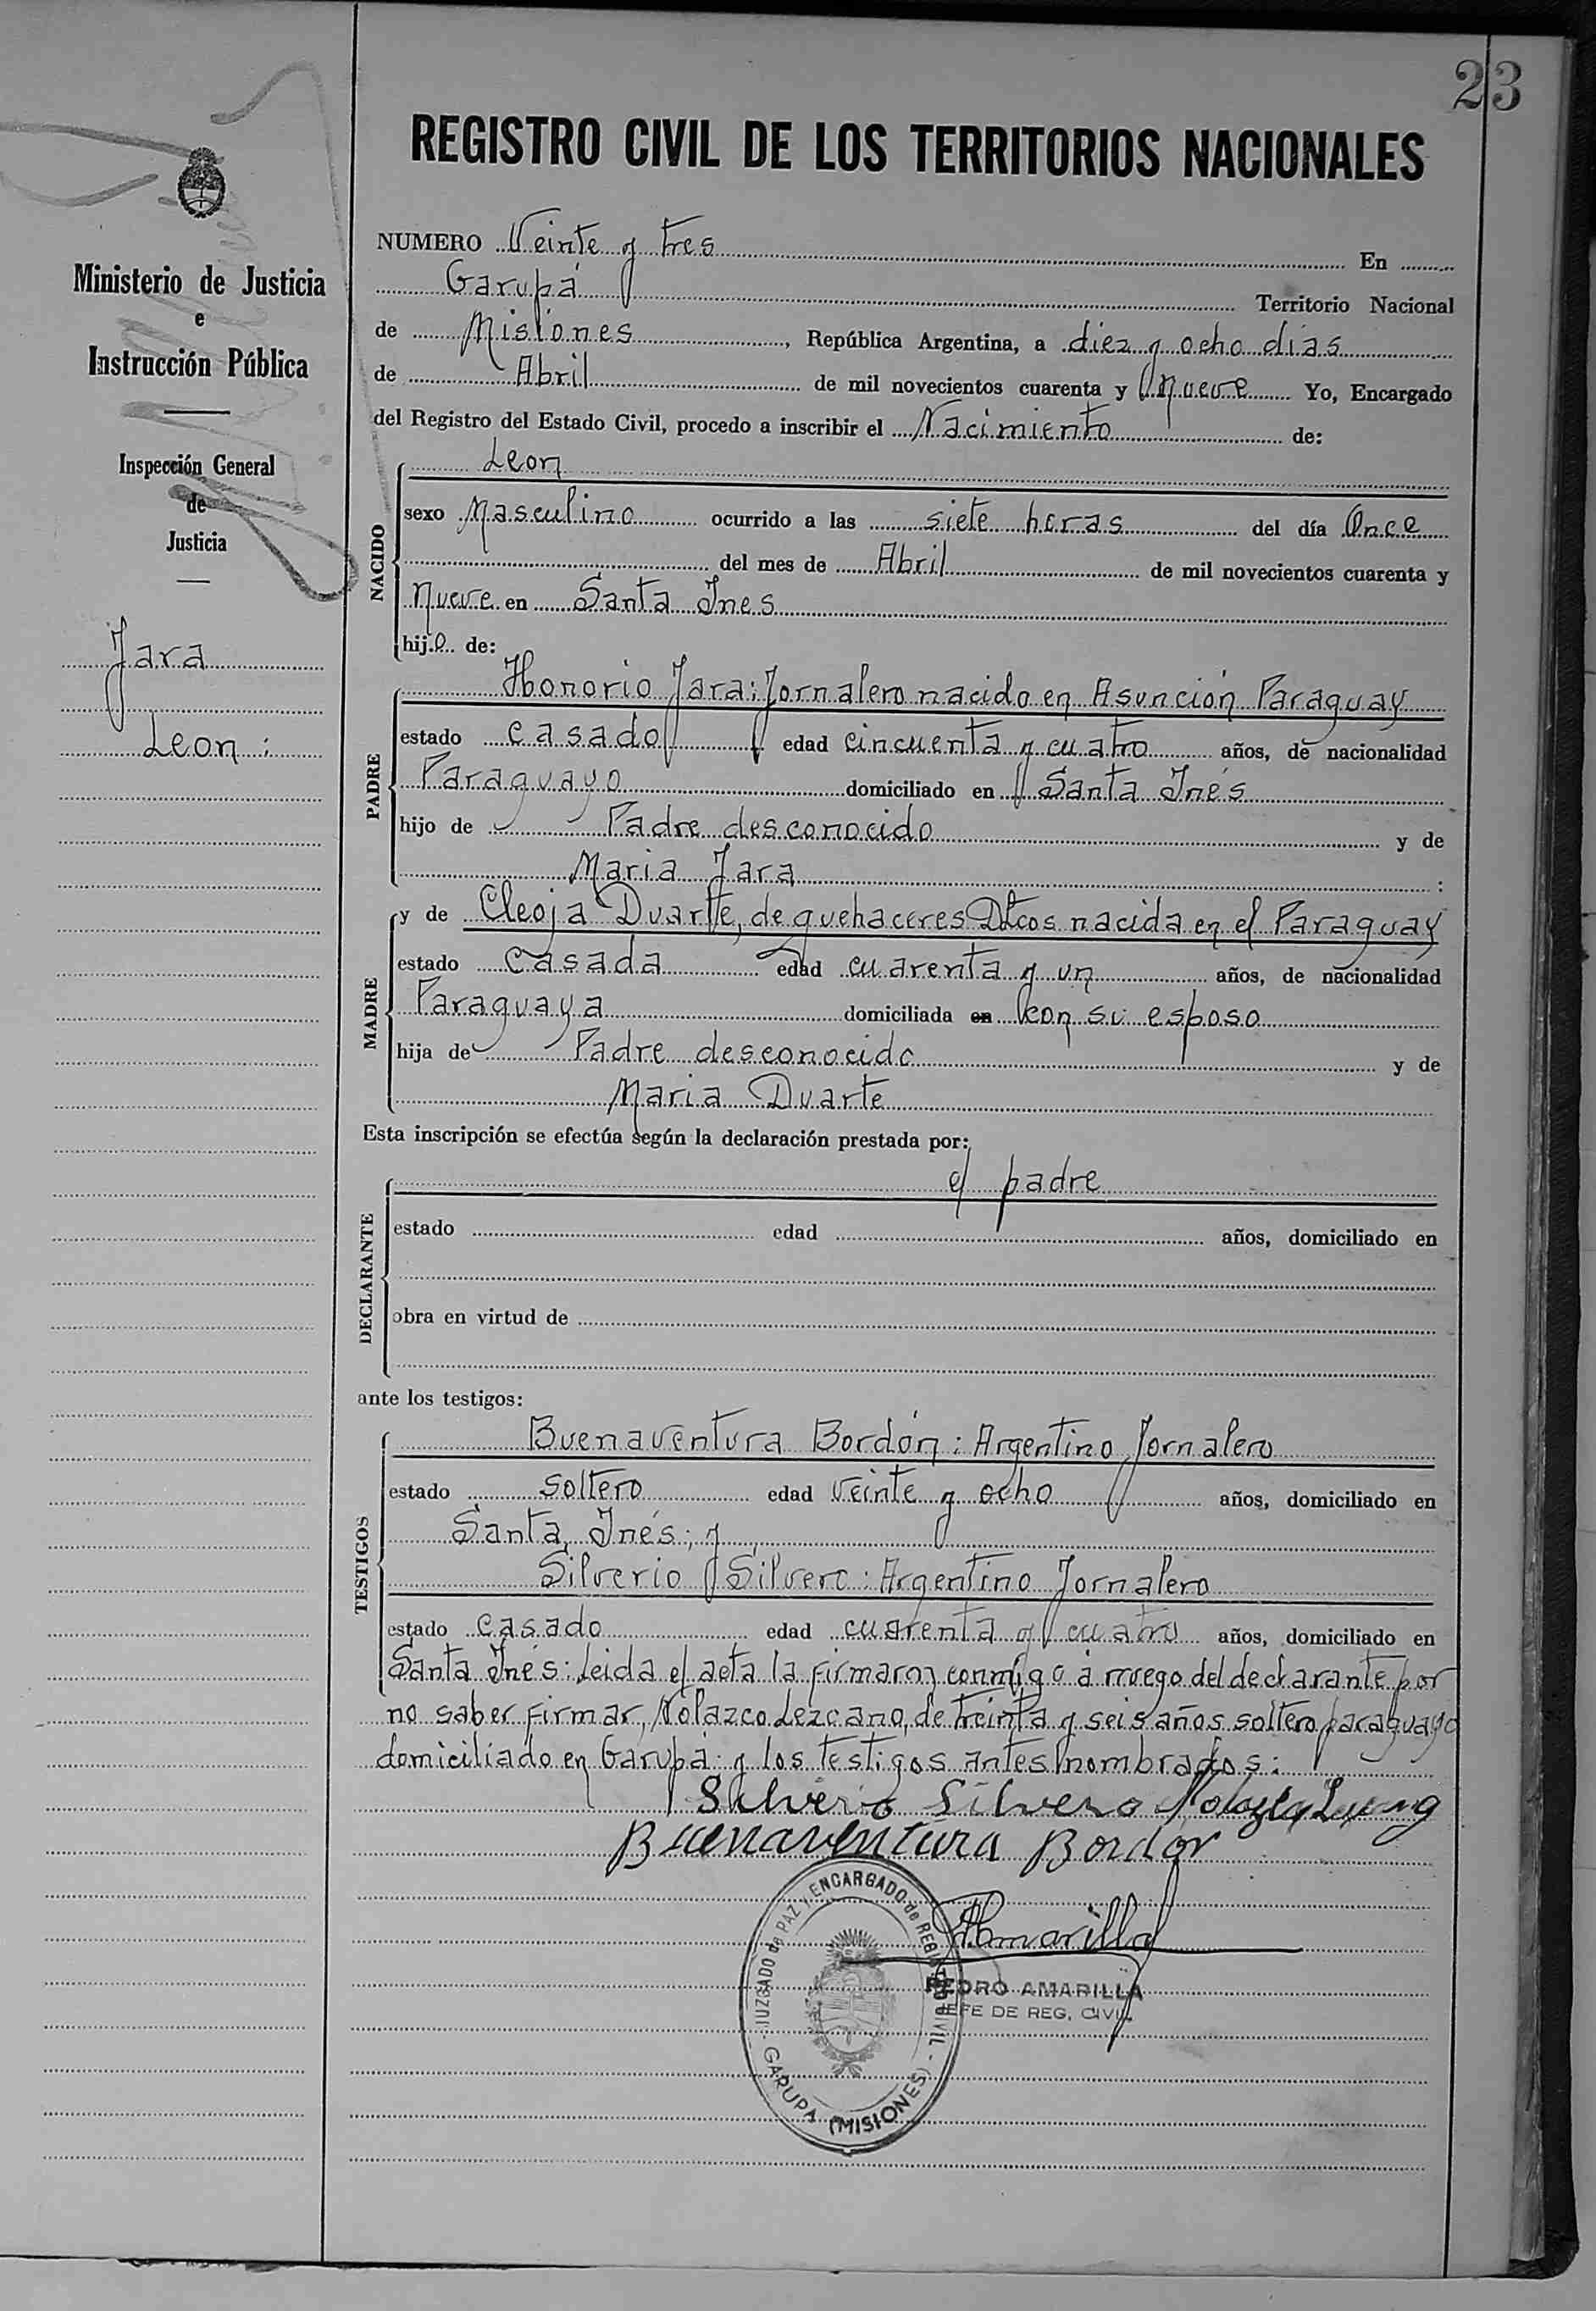 23
REGISTRO CIVIL DE LOS TERRITORIOS NACIONALES
Ministerio de Justicia
e
Instrucción Pública
Inspección General
de
Justicia
Jara
Leon :
NUMERO Veinte y tres En
Garupá Territorio Nacional
de Misiones, República Argentina, a diez y ocho dias
de Abril de mil novecientos cuarenta y nueve Yo, Encargado
del Registro del Estado Civil, procedo a inscribir el Nacimiento de:
NACIDO
Leon
sexo Masculino ocurrido a las siete horas del día Once
del mes de Abril de mil novecientos cuarenta y
nueve en Santa Ines
hijo de:
PADRE
Honorio Jara: Jornalero nacido en Asunción Paraguay
estado casado edad cincuenta y cuatro años, de nacionalidad
Paraguayo domiciliado en Santa Inés
hijo de Padre desconocido y de
Maria Jara :
MADRE
y de Cleoja Duarte, de quehaceres Dtcos nacida en el Paraguay
estado casada edad cuarenta y un años, de nacionalidad
Paraguaya domiciliada en con su esposo
hija de Padre desconocido y de
Maria Duarte
Esta inscripción se efectúa según la declaración prestada por:
DECLARANTE
el padre
estado edad años, domiciliado en
obra en virtud de
ante los testigos:
TESTIGOS
Buenaventura Bordón: Argentino Jornalero
estado soltero edad veinte y ocho años, domiciliado en
Santa Inés; y
Silverio Silvero: Argentino Jornalero
estado casado edad cuarenta y cuatro años, domiciliado en
Santa Inés: Leida el acta la firmaron conmigo à rruego del declarante por
no saber firmar, Nolazco Lezcano, de treinta y seis años soltero paraguayo
domiciliado en Garupá y los testigos antes nombrados:
Silverio Silvero Nolazco
Buenaventura Bordón
Amarilla
JUZGADO de PAZ Y ENCARGADO de REGISTRO CIVIL - GARUPA (MISIONES)
PEDRO AMARILLA
JEFE DE REG. CIVIL